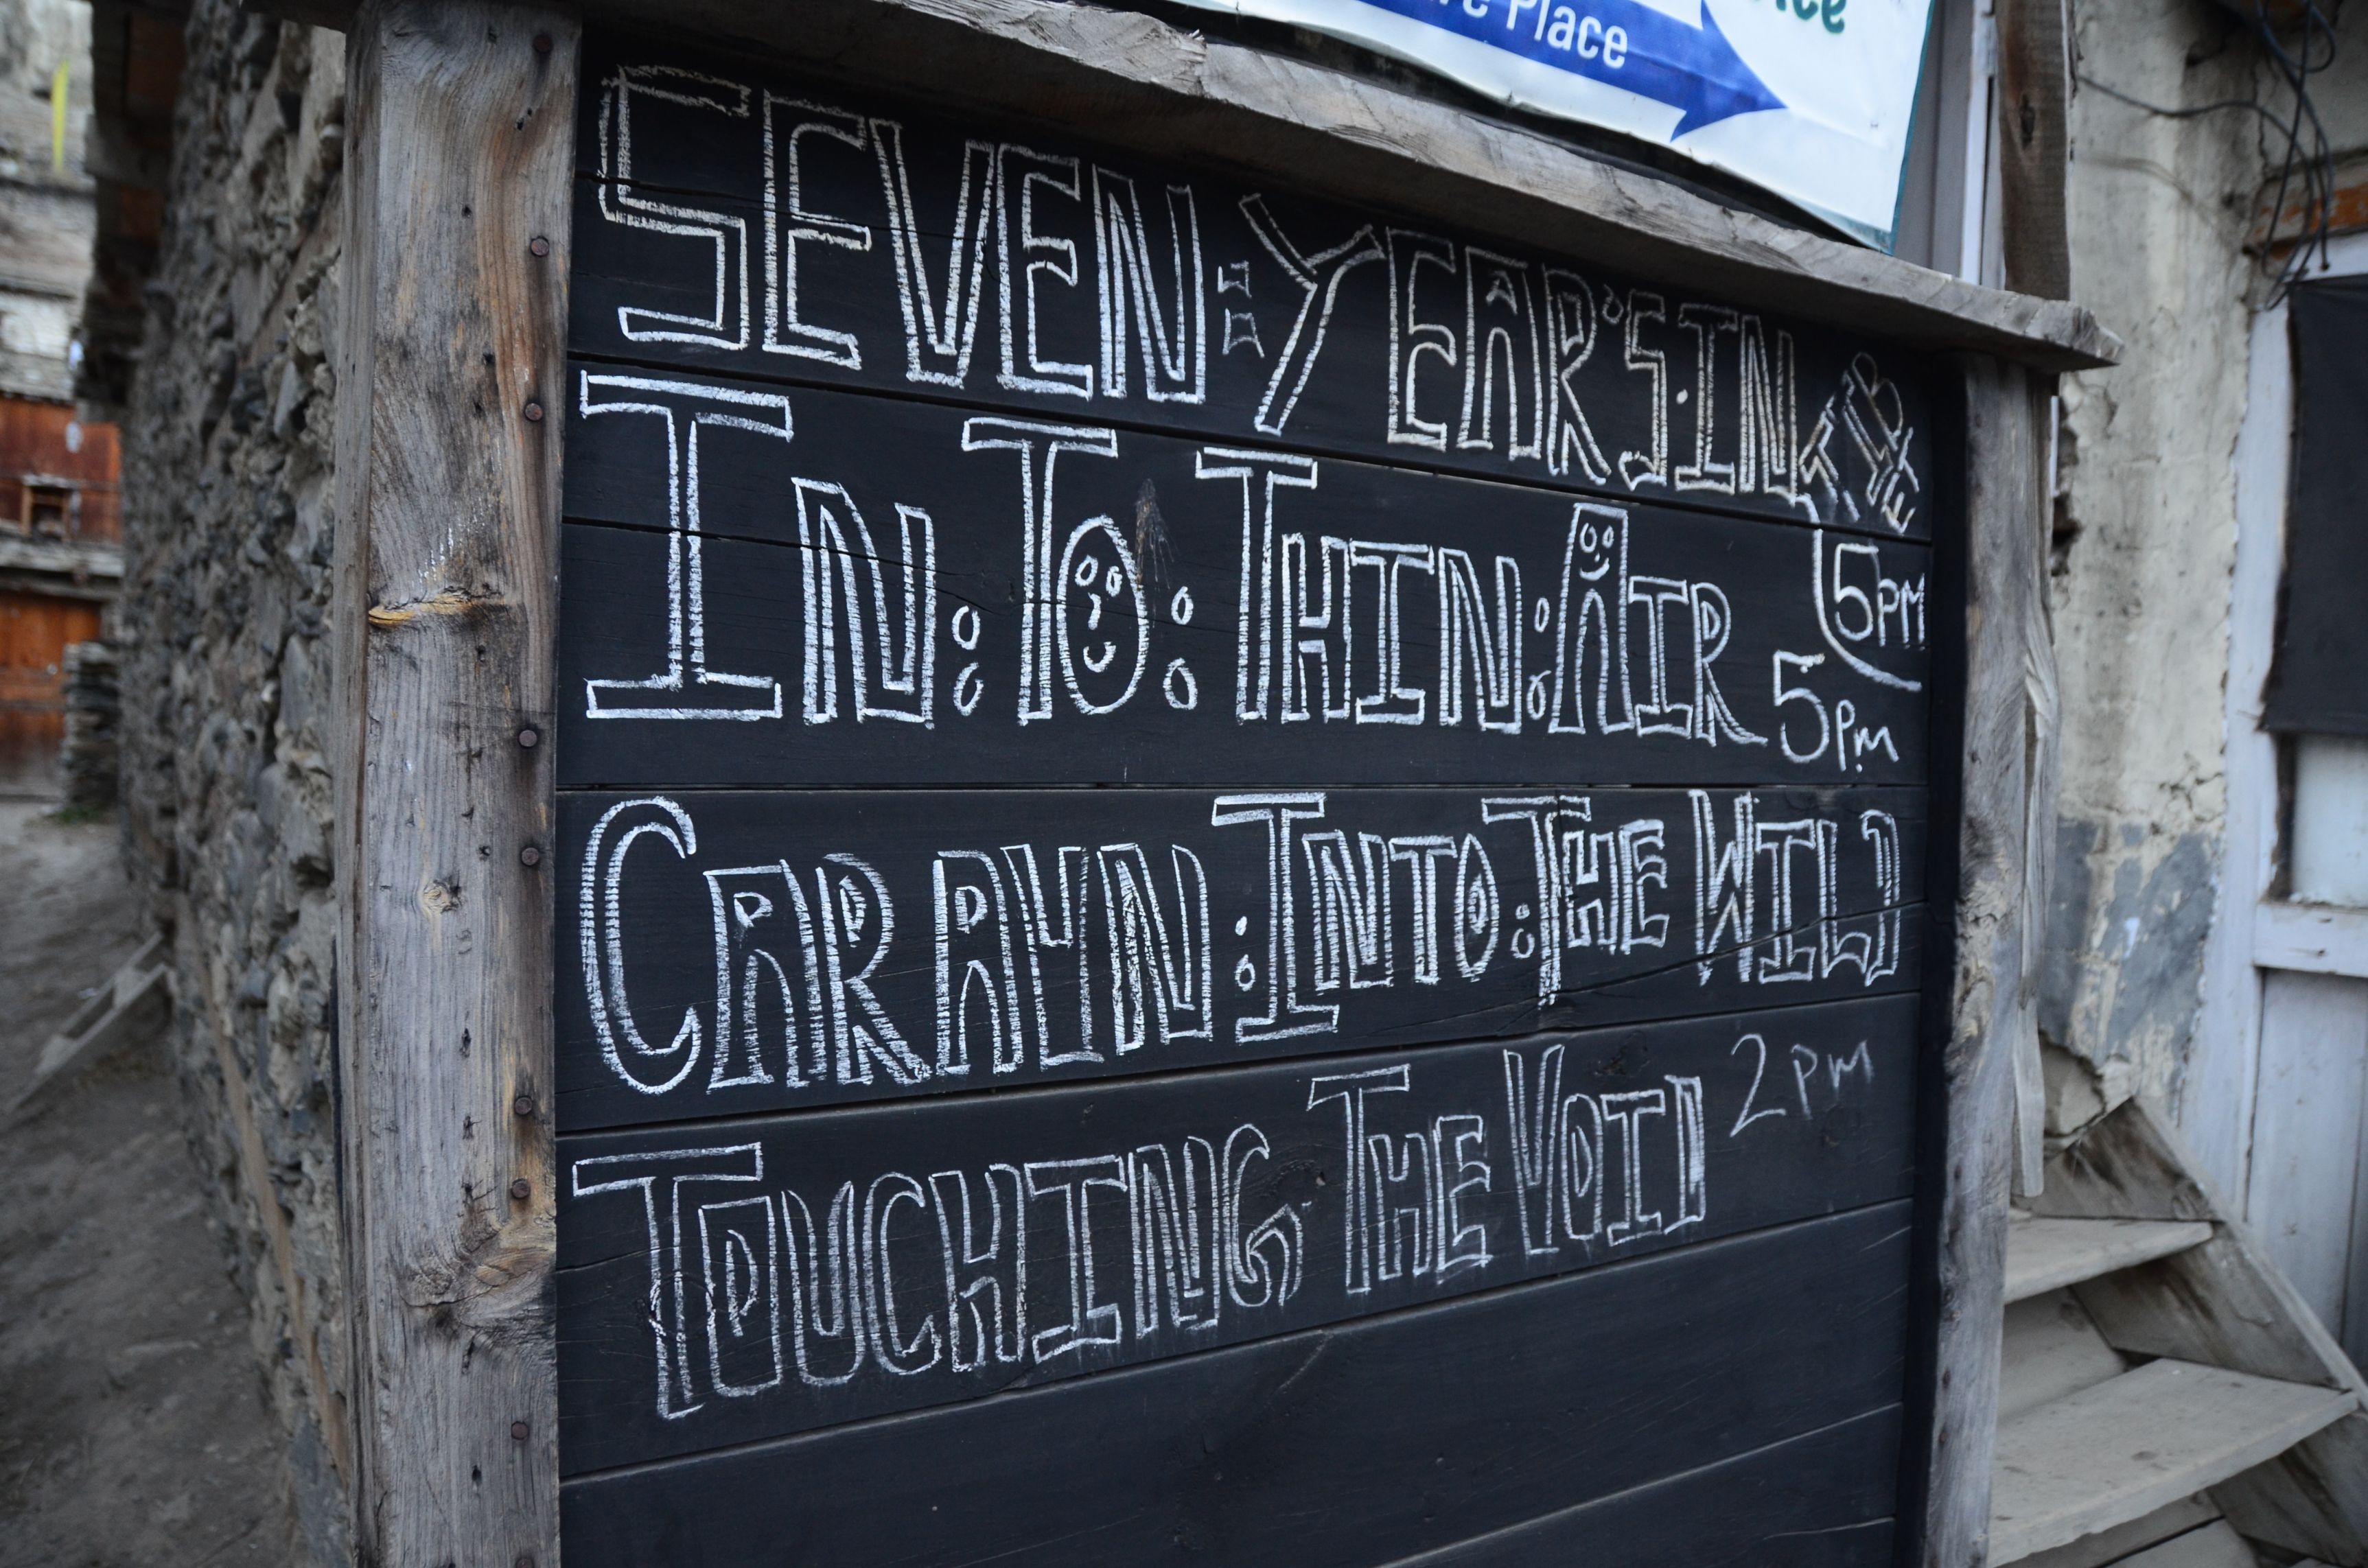 Place
SEVEN:YEAR'S.IN TIBET
5PM
IN:TO:THIN:AIR 5PM
CARAVAN:INTO:THE WILD
TOUCHING THE VOID 2PM